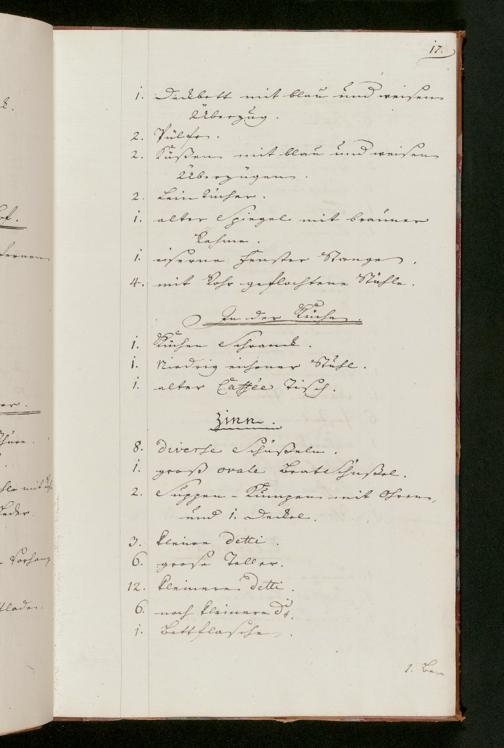 17.
1. Deckbett mit blau und weisen
Überzug.
2. Pülfe.
2. Küßen mit blau und weisen
Überzügen.
2. Leintücher.
1. alter Spiegel mit brauner
Rahme.
1. eiserne Fenster Stange.
4. mit Rohr geflochtene Stühle.
In der Küche.
1. Küchen Schranck.
1. Niedrig eichener Stuhl.
1. alter Caffée Tisch.
Zinn.
8. diverse Schüßeln.
1. groß ovale Bratschüßel.
2. Suppen-Kumpen mit Ohren,
und 1. Deckel.
3. kleine detti.
6. grose Teller.
12. kleinere detti.
6. noch kleinere do.
1. Bettflasche.